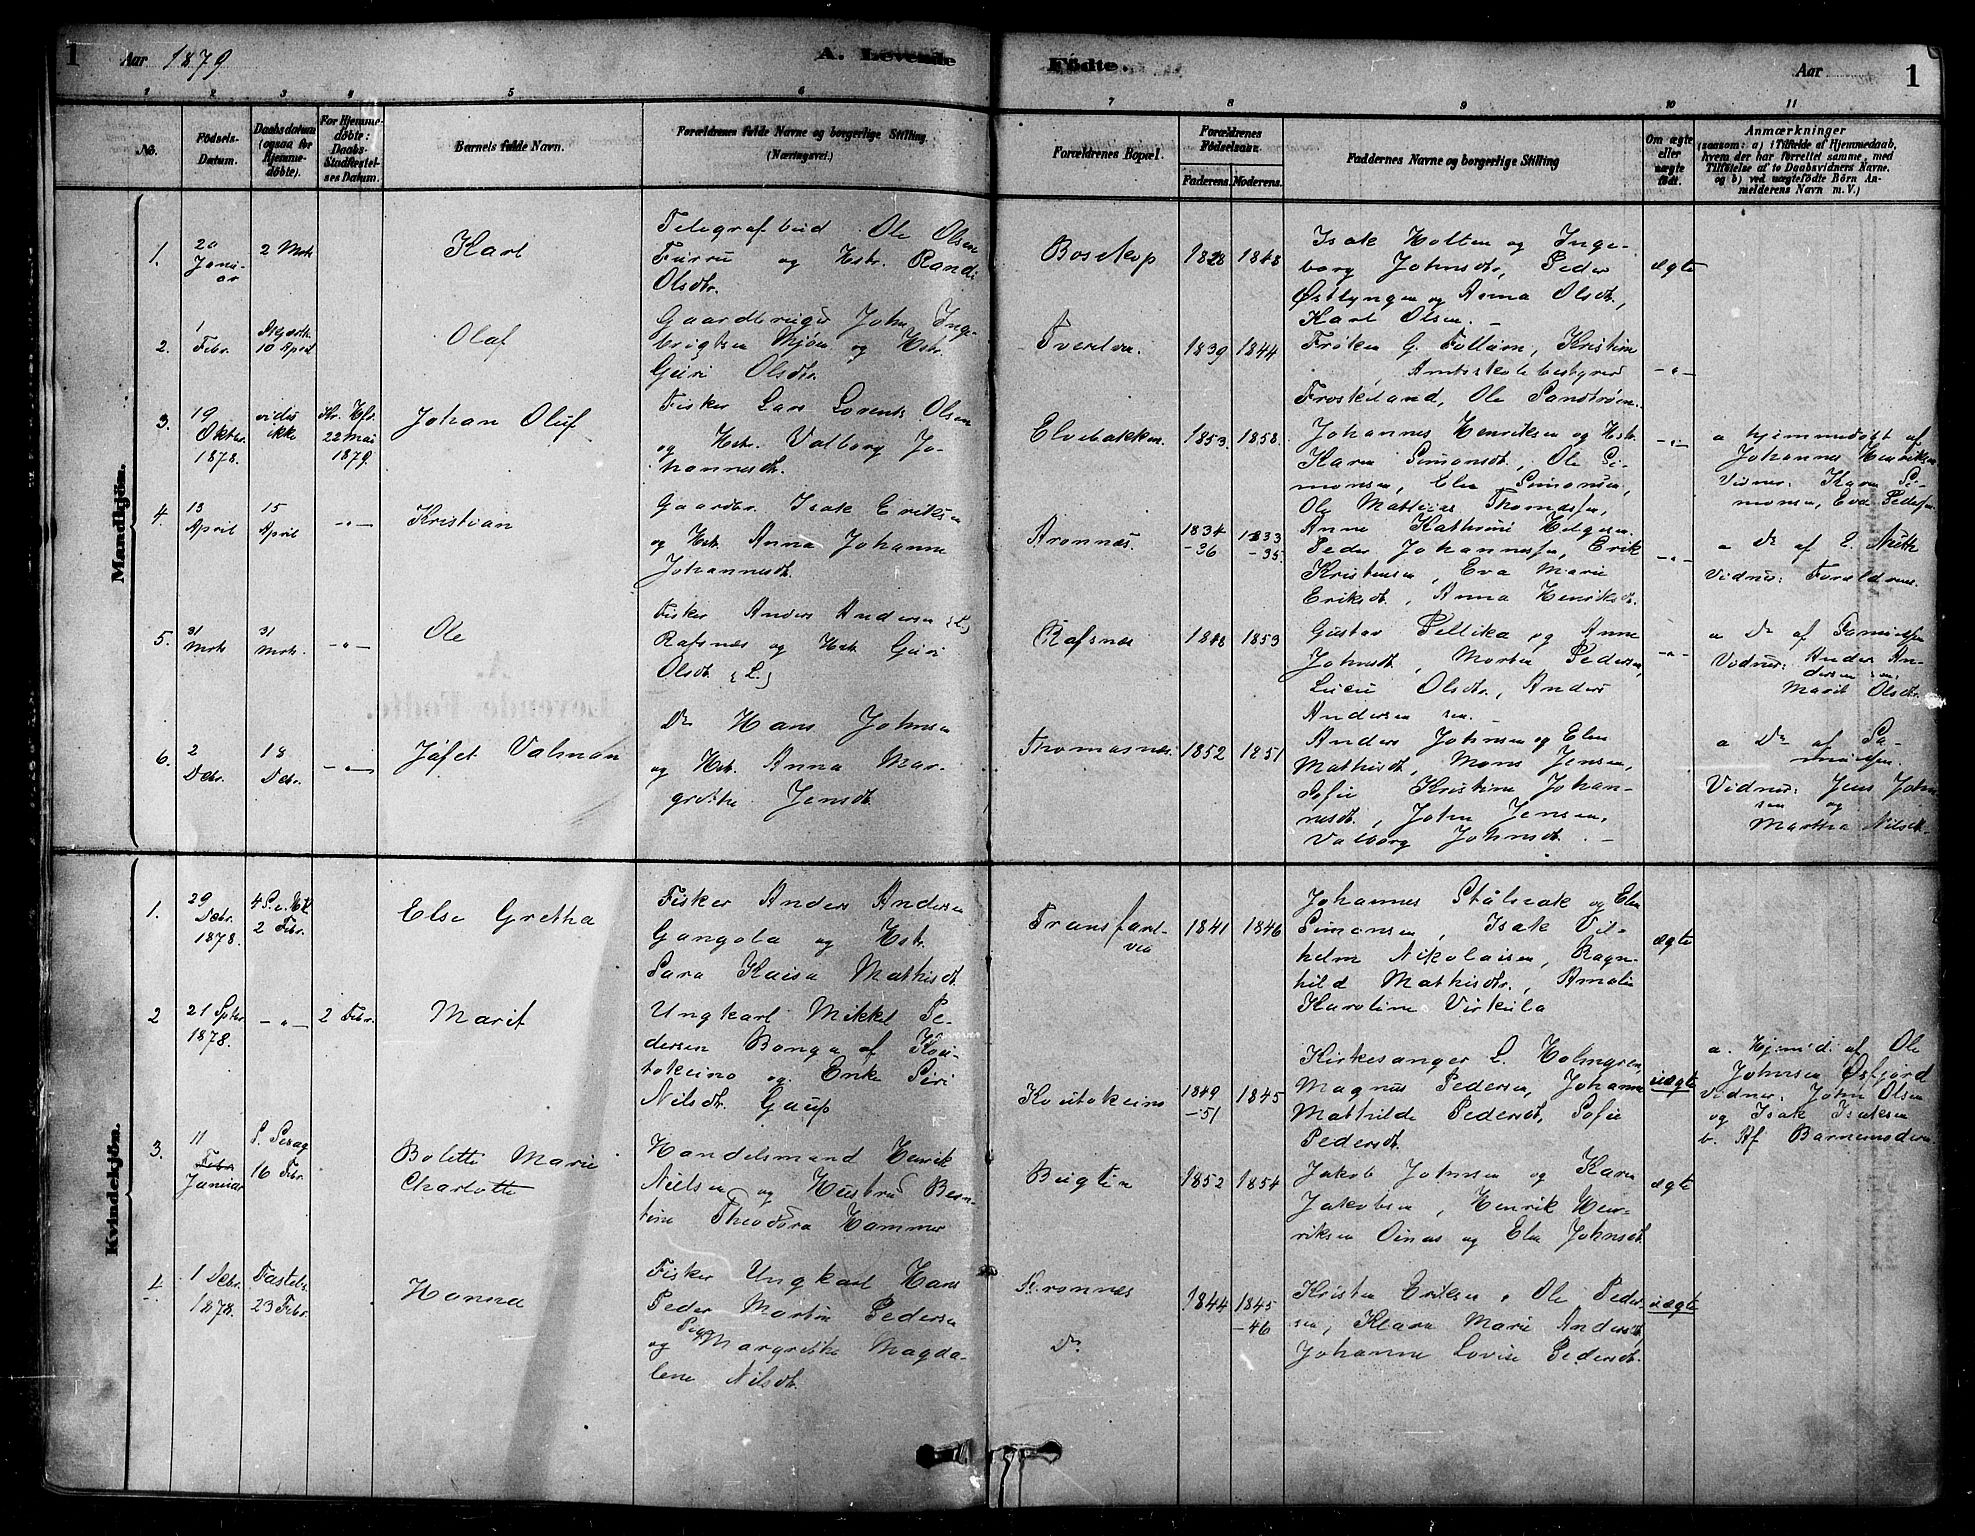 1 Aar 1879 A. Levende Födte. Aar 1
1 2 3 4 5 6 7 8 9 10 11
No. Födsels-Datum. Daabsdatum (ogsaa for Hjemme-döbte). For Hjemme-döbte: Daabs-Stadfæstel-ses Datum. Barnets fulde Navn. Forældrenes fulde Navne og borgerlige Stilling. (Næringsvei.) Forældrenes Bopæl. Forældrenes Födselsaar. Faderens. Moderens. Faddernes Navne og borgerlige Stilling Om ægte eller uægte födt. Anmærkninger
(saasom: a) i Tilfælde af Hjemmedaab,
hvem der har forrettet samme, med
Tilföielse af to Daabsvidners Navne,
og b) ved uægtefödte Börn An-
melderens Navn m. V.)
Mandkjön.
1. 20 Januar 2 Mrts Karl
Telegrafbud Ole Olsen
Furru og Hstr. Randi
Olsdtr.
Bosekop 1828 1848
Isak Holten og Inge-
borg Johnsdtr., Peder
Østlyngen og Anna Olsdtr.,
Karl Olsen. –
ægte
2. 1 Febr. 10 April Olaf
Gaardbruger John Inge-
brigtsen og Hstr.
Guri Olsdtr.
Tverelven 1839 1844
Frøken G. Follum, Kristine
Amtsskolebestyrer
Froskeland, Ole Sandstrøm.
–"–
3. 19 Oktbr. 1878. vides ikke 22 Mai 1879. Johan Oluf
Fisker Lars Lorents Olsen
og Hstr. Valborg Jo-
hannesdtr.
Elvebakken 1853. 1858.
Johannes Henriksen og Hstr.
Karen Simonsdtr., Ole Si-
monsen, Elen Simonsen,
Ole Mathias Thomassen,
–"–
a hjemmedøbt af
Johannes Henriksen
Vidner: Karen Si-
monsen, Eva Pedersen
4. 13 April 15 April –"– Kristian
Gaardbr. Isak Eriksen
og Hstr. Anna Johanne
Johannesdtr.
Aronnæs. 1834 -36 1833 -35.
Anne Kathrine Helgesen.
Peder Johannessen, Erik
Kristensen, Eva Marie
Eriksdtr., Anna Henriksdtr.
–"–
a Do af
Vidner: Forældrene
5. 31 Mrts 31 Mrts. –"– Ole
Fisker Anders Andersen (L)
Rafsnæs og Hstr. Guri
Olsdtr. (L.)
Rafsnæs 1848 1853
Gustav Pellika og Anne
Johnsdtr., Morten Pedersen,
Lucie Olsdtr., Anders
Andersen sen. –
–"–
a Do af Samuelsen
Vidner: Anders An-
dersen sen.
Marit Olsdtr.
6. 2 Debr. 18 Debr. –"– Jafet Valman
Do Hans Johnsen
og Hstr. Anna Mar-
grethe Jensdtr.
Thomasnæs. 1852 1851
Anders Johnsen og Elen
Mathisdtr., Mons Jensen,
Sofie Kristine Johan-
nesdtr., John Jensen,
Valborg Johnsdtr. –
a Do af Sa-
muelsen.
Vidner: Jens John-
sen og
Martha Nilsdtr.
Kvindekjön.
1. 29 Debr. 1878. 4 S.e.H.3K. 2 Febr. Else Gretha
Fisker Anders Andersen
Gangola og Hstr.
Sara Kaisa Mathisdtr.
Transfarelv 1841 1846
Johannes Stålnak og Elen
Simonsen, Isak Vil-
helm Nikolaisen, Ragn-
hild Mathisdtr., Amalie
Karoline Virkula
ægte
2 21 Sptbr. 1878. –"– 2 Febr. Marit
Ungkarl Mikkel Pe-
dersen Bonga af Kou-
tokeino og Enke Siri
Nilsdtr. Gaup
Koutokeino 1849 -51 1845
Kirkesanger L. Holmgren,
Magnus Pedersen, Johanne
Mathilde Pedersdtr., Sofie
Pedersdtr.
uægte
a. Hjemmed. af Ole
Johnsen Øsfjord
Vidner: John Olsen
og Isak Isaksen
b. Af Barnemoderen.
3. 11 Januar S. Sexag 16 Febr. Bolette Marie
Charlotte
Handelsmand Henrik
Nielsen og Hustru Bern-
tine Theodora Hammer
Bugten 1852 1854
Jakob Johnsen og Karen
Jakobsen, Henrik Hen-
riksen Oinas og Elen Johnsdtr.
ægte
4. 1 Debr. 1878. Fastels. 23 Febr. Hanna
Fisker Ungkarl Hans
Peder Martin Pedersen
og Pige Margrethe Magda-
lene Nilsdtr.
Aronnæs
Do
1844 1845 -46
Kristen Eriksen, Ole Peder-
sen, Klara Marie Andersdtr.
Johanne Lovise Pedersdtr.
uægte